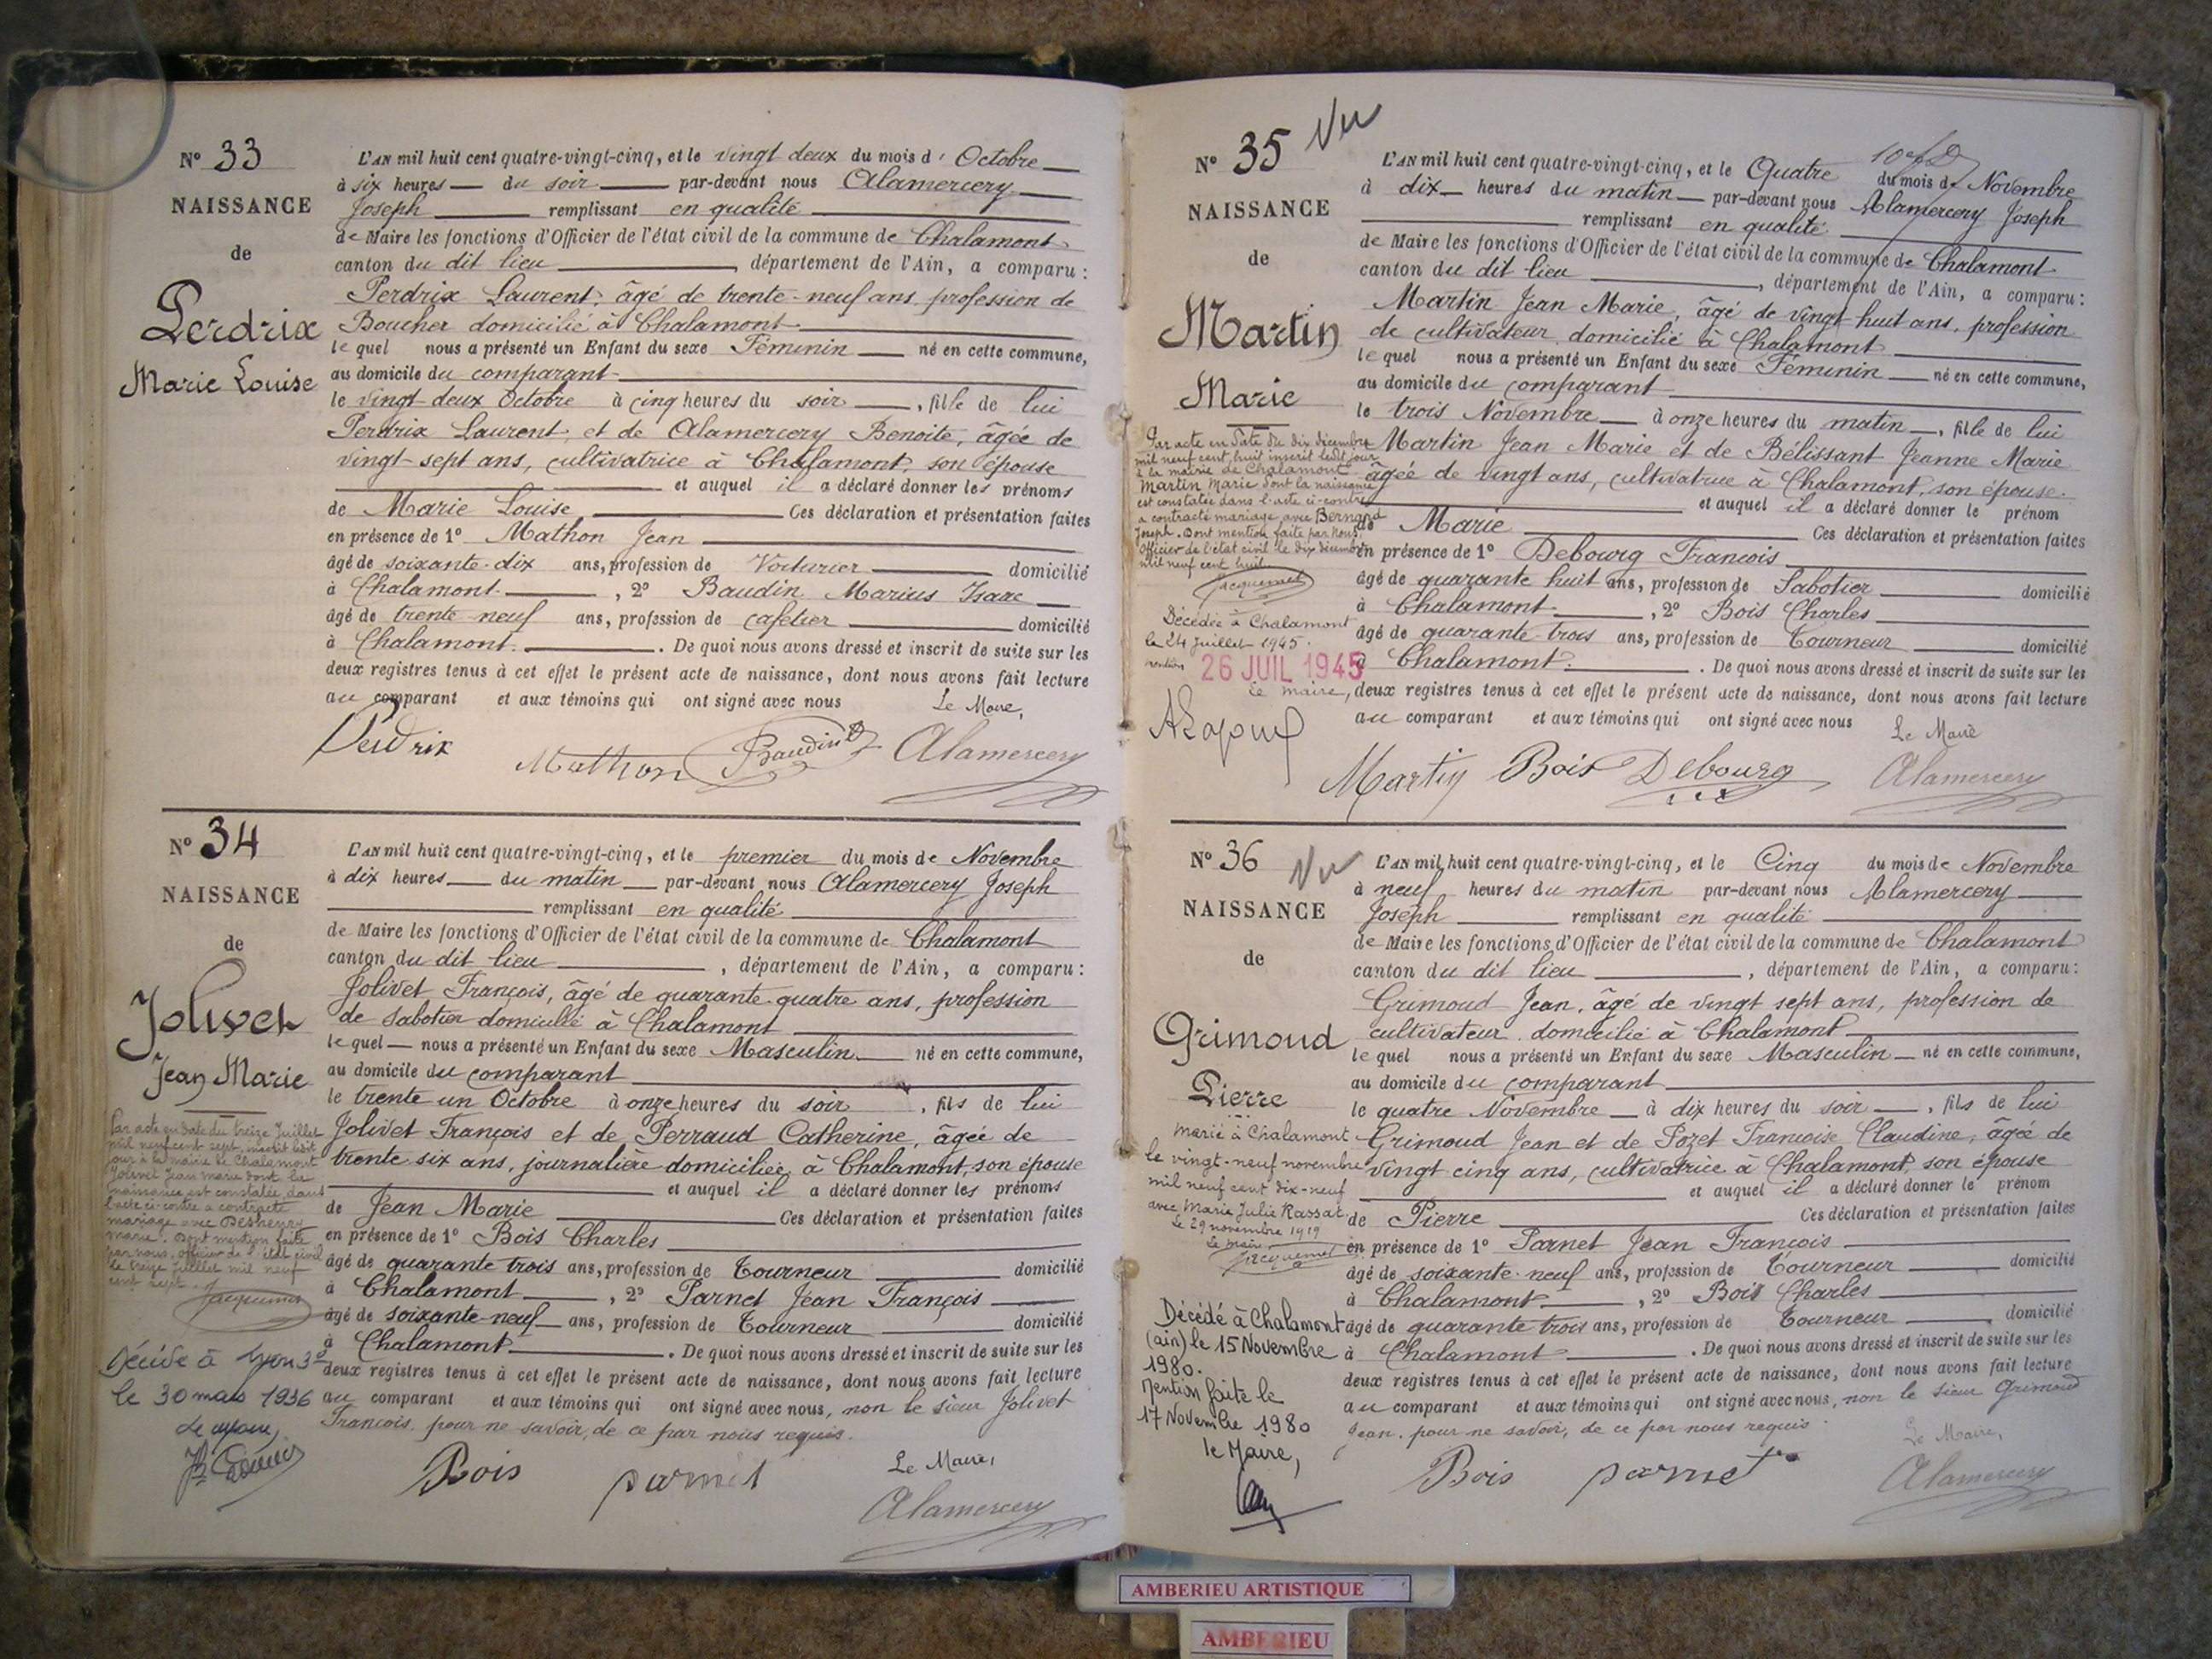 N° 33
NAISSANCE
de
Perdrix
Marie Louise
L'AN mil huit cent quatre-vingt-cinq, et le vingt deux du mois d' Octobre
à six heures du soir par-devant nous Alamercery
Joseph remplissant en qualité
de Maire les fonctions d'Officier de l'état civil de la commune de Chalamont
canton du dit lieu, département de l'Ain, a comparu:
Perdrix Laurent, âgé de trente-neuf ans, profession de
Boucher domicilié à Chalamont
le quel nous a présenté un Enfant du sexe Féminin né en cette commune,
au domicile du comparant
le vingt-deux Octobre à cinq heures du soir, fille de lui
Perdrix Laurent, et de Alamercery Benoite, âgée de
vingt-sept ans, cultivatrice à Chalamont, son épouse
et auquel il a déclaré donner les prénoms
de Marie Louise, Ces déclaration et présentation faites
en présence de 1° Mathon Jean
âgé de soixante-dix ans, profession de Voiturier domicilié
à Chalamont, 2° Baudin Marius Isaac
âgé de trente neuf ans, profession de cafetier domicilié
à Chalamont. De quoi nous avons dressé et inscrit de suite sur les
deux registres tenus à cet effet le présent acte de naissance, dont nous avons fait lecture
au comparant et aux témoins qui ont signé avec nous Le Maire,
Perdrix Mathon Baudin Alamercery
N° 34
NAISSANCE
de
Jolivet
Jean Marie
Par acte en date du treize Juillet
mil neuf cent sept, inscrit ledit
jour à la mairie de Chalamont
Jolivet Jean Marie dont la
naissance est constatée dans
l'acte ci-contre a contracté
mariage avec
Marie. Dont mention faite
par nous, officier de l'état civil
le treize Juillet mil neuf
cent sept.
Jacquemet
Décédé à Lyon 3e
le 30 mars 1936
L'AN mil huit cent quatre-vingt-cinq, et le premier du mois de Novembre
à dix heures du matin par-devant nous Alamercery Joseph
remplissant en qualité
de Maire les fonctions d'Officier de l'état civil de la commune de Chalamont
canton du dit lieu, département de l'Ain, a comparu:
Jolivet François, âgé de quarante-quatre ans, profession
de Sabotier domicilié à Chalamont
le quel nous a présenté un Enfant du sexe Masculin né en cette commune,
au domicile du comparant
le trente un Octobre à onze heures du soir, fils de lui
Jolivet François et de Perraud Catherine, âgée de
trente six ans, journalière domiciliée à Chalamont, son épouse
et auquel il a déclaré donner les prénoms
de Jean Marie Ces déclaration et présentation faites
en présence de 1° Bois Charles
âgé de quarante trois ans, profession de Tourneur domicilié
à Chalamont, 2° Parnet Jean François
âgé de soixante-neuf ans, profession de Tourneur domicilié
à Chalamont. De quoi nous avons dressé et inscrit de suite sur les
deux registres tenus à cet effet le présent acte de naissance, dont nous avons fait lecture
au comparant et aux témoins qui ont signé avec nous, non le sieur Jolivet
François, pour ne savoir, de ce par nous requis.
Bois parnet Le Maire,
Alamercery
N° 35 Vu
NAISSANCE
de
Martin
Marie
Par acte en date du dix décembre
mil neuf cent huit inscrit ledit jour
à la mairie de Chalamont
Martin Marie dont la naissance
est constatée dans l'acte ci-contre
a contracté mariage avec Bernard
Joseph. Dont mention faite par nous,
officier de l'état civil le dix décembre
mil neuf cent huit
Jacquemet
Décédée à Chalamont
le 24 Juillet 1945.
26 JUIL 1945
Le maire,
L'AN mil huit cent quatre-vingt-cinq, et le Quatre du mois de Novembre
à dix heures du matin par-devant nous Alamercery Joseph
remplissant en qualité
de Maire les fonctions d'Officier de l'état civil de la commune de Chalamont
canton du dit lieu, département de l'Ain, a comparu:
Martin Jean Marie, âgé de vingt-huit ans, profession
de cultivateur domicilié à Chalamont
le quel nous a présenté un Enfant du sexe Féminin né en cette commune,
au domicile du comparant
le trois Novembre à onze heures du matin, fille de lui
Martin Jean Marie et de Bélissant Jeanne Marie
âgée de vingt ans, cultivatrice à Chalamont, son épouse.
et auquel il a déclaré donner le prénom
de Marie Ces déclaration et présentation faites
en présence de 1° Debourg François
âgé de quarante huit ans, profession de Sabotier domicilié
à Chalamont, 2° Bois Charles
âgé de quarante-trois ans, profession de Tourneur domicilié
à Chalamont. De quoi nous avons dressé et inscrit de suite sur les
deux registres tenus à cet effet le présent acte de naissance, dont nous avons fait lecture
au comparant et aux témoins qui ont signé avec nous Le Maire
Martin Bois Debourg Alamercery
N° 36 Vu
NAISSANCE
de
Grimoud
Pierre
Marié à Chalamont
le vingt-neuf novembre
mil neuf cent dix-neuf
avec Marie Julie Rassat.
Le 29 novembre 1919
Le maire
Jacquemet
Décédé à Chalamont
(ain) le 15 Novembre
1980.
Mention faite le
17 Novembre 1980
le Maire,
L'AN mil huit cent quatre-vingt-cinq, et le Cinq du mois de Novembre
à neuf heures du matin par-devant nous Alamercery
Joseph remplissant en qualité
de Maire les fonctions d'Officier de l'état civil de la commune de Chalamont
canton du dit lieu, département de l'Ain, a comparu:
Grimoud Jean, âgé de vingt sept ans, profession de
cultivateur domicilié à Chalamont
le quel nous a présenté un Enfant du sexe Masculin né en cette commune,
au domicile du comparant
le quatre Novembre à dix heures du soir, fils de lui
Grimoud Jean et de Pozet Françoise Claudine, âgée de
vingt cinq ans, cultivatrice à Chalamont, son épouse
et auquel il a déclaré donner le prénom
de Pierre Ces déclaration et présentation faites
en présence de 1° Parnet Jean François
âgé de soixante-neuf ans, profession de Tourneur domicilié
à Chalamont, 2° Bois Charles
âgé de quarante trois ans, profession de Tourneur domicilié
à Chalamont. De quoi nous avons dressé et inscrit de suite sur les
deux registres tenus à cet effet le présent acte de naissance, dont nous avons fait lecture
au comparant et aux témoins qui ont signé avec nous, non le sieur Grimoud
Jean, pour ne savoir, de ce par nous requis.
Le Maire,
Bois parnet Alamercery
AMBERIEU ARTISTIQUE
AMBERIEU